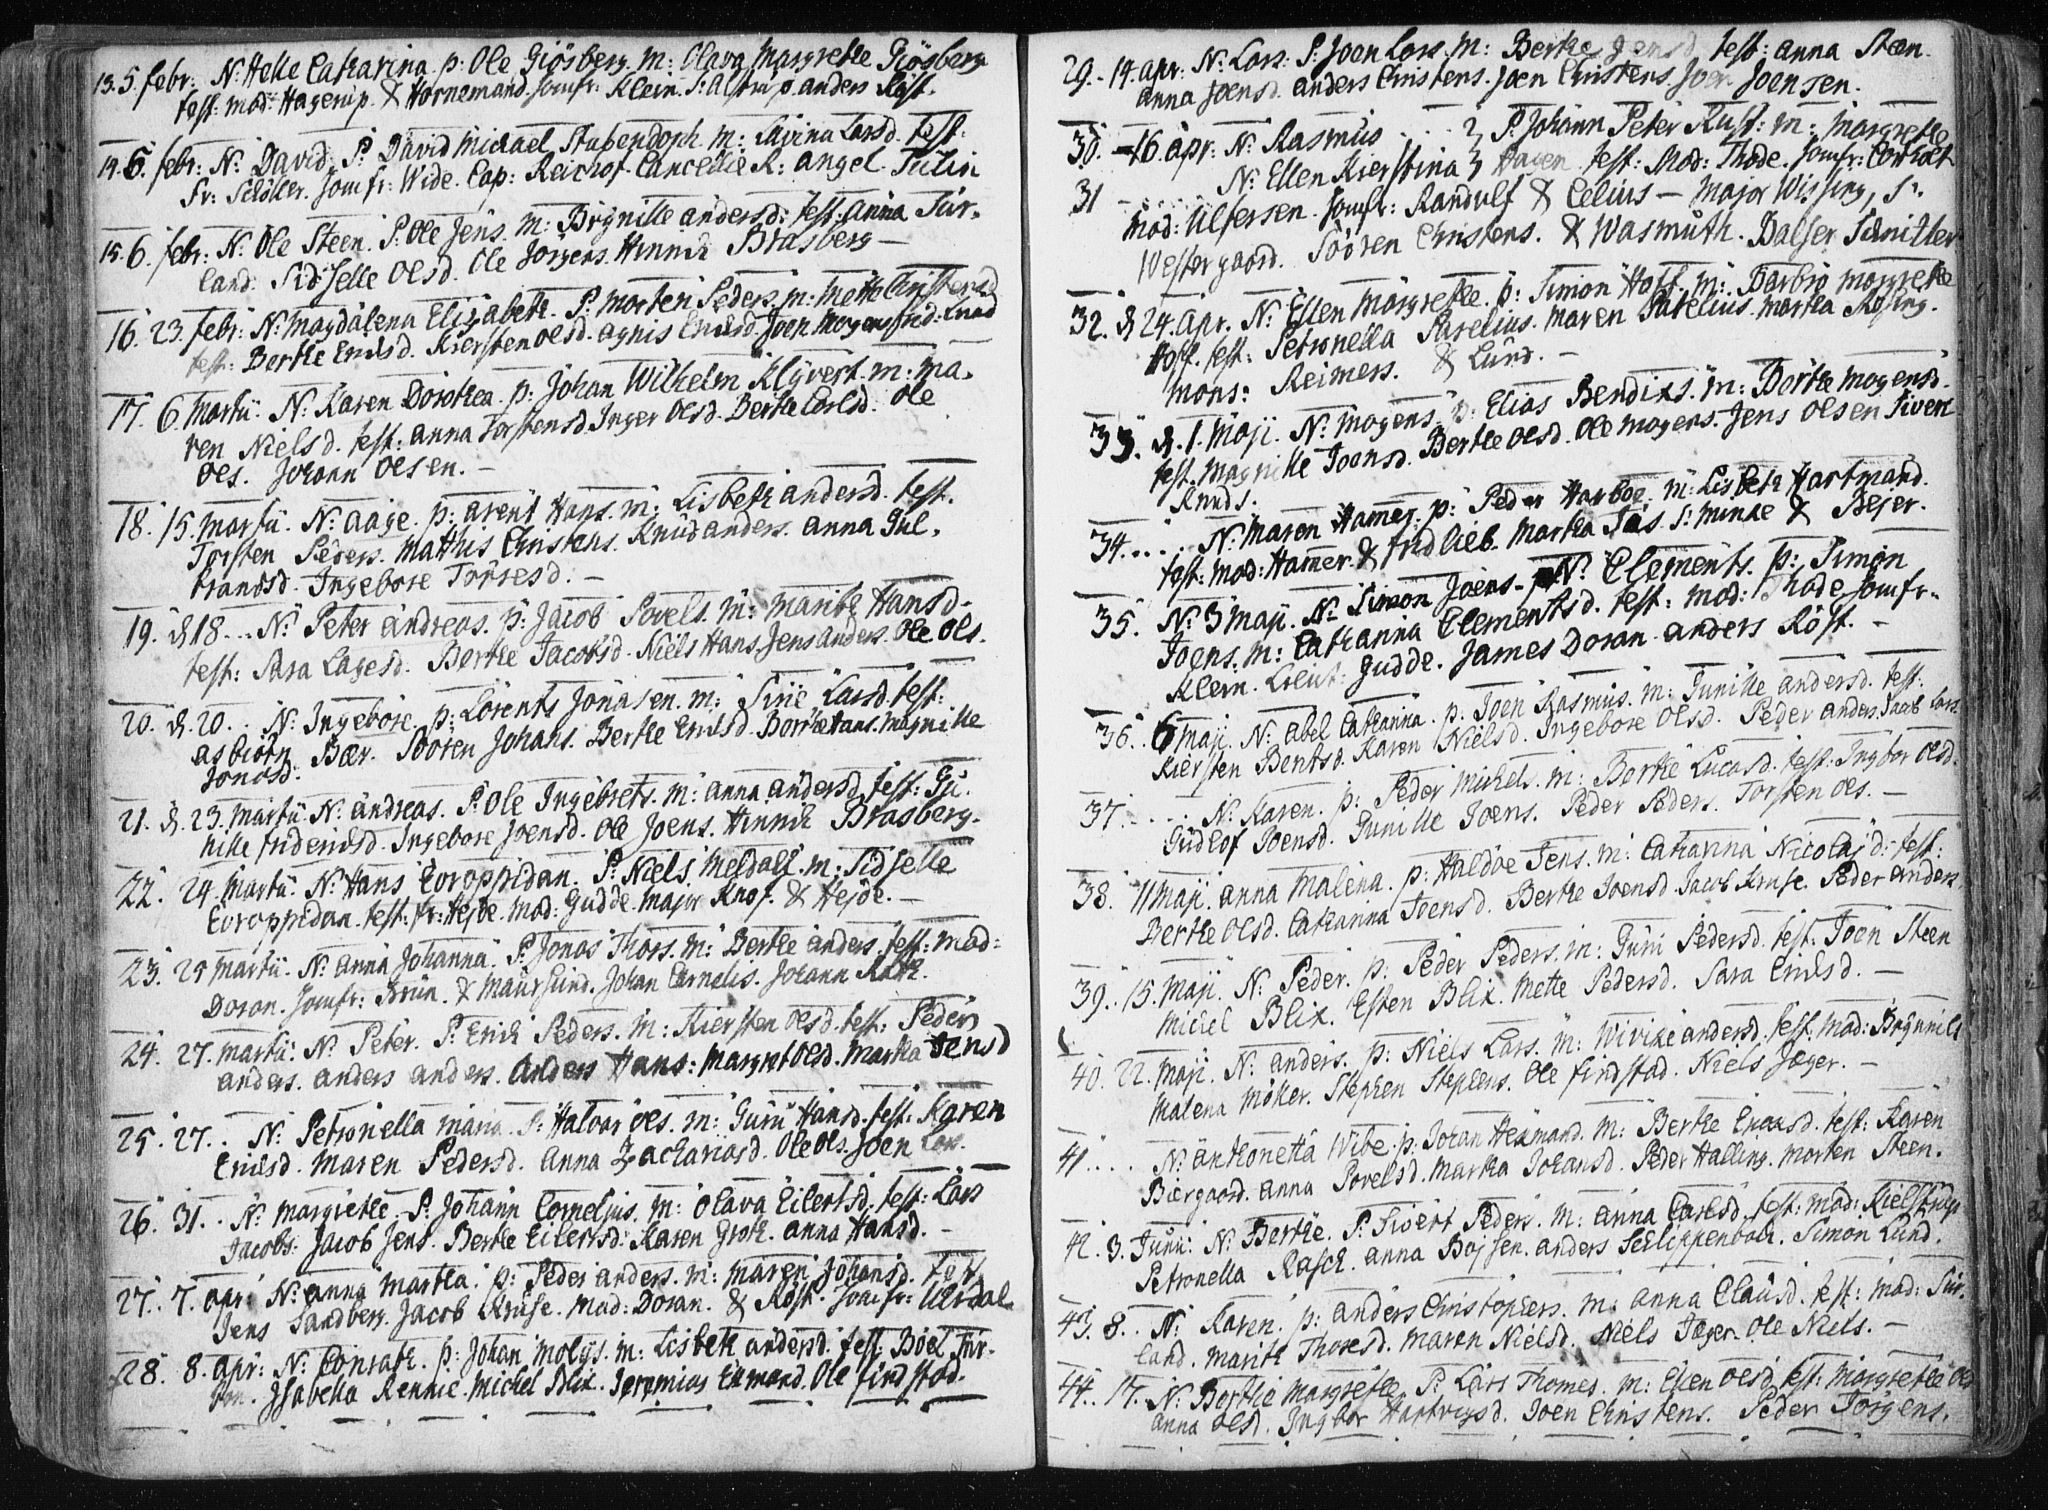 13. 5. febr: N: Helle Catharina p: Ole Giösberg m: Olava Margrethe Giösberg
test: mod: Hagerup. & Hornemand. Jomfr: Klein. S: Alstrup. anders Röst.
14. 6. febr: N: David. P: David Michael Stubendorph. m: Larsd. test:
Fr: Schöller. Jomfr: Wide. Cap: Reichof. Cancellie R: angel. Tulin
15. 6. febr: N: Ole Steen. P: Ole Jens. m: Brynille andersd: test: anna Sur.
land. Sidselle Olsd. Ole Jörgens. Hinrich Brasberg —
16. 23. febr: N: Magdalena Elizabeth. P: Morten Peders. m: Mette Christensd
test: Berthe Erichsd. Kiersten Olsd. agnis Erichsd. Joen Mogens. frid: Knud
17. 6. Martii. N: Karen Dorothea. p: Johan Wilhelm Klyvert. m: Ma.
ren Nielsd. test: anna Torstensd. Inger Olsd. Berthe Carlsd. Ole
Oes. Johann Olsen. —
18. 15. Martii. N: Aage. p: arent Hans. m: Lisbeth andersd. test.
Torsten Peders. Mathis Christens. Knud anders. anna Gul.
brandsd. Ingebore Torresd. —
19. d. 18... N: Peter andreas. p: Jacob Povels. m: Marith Hansd.
test: Sara Lagesd. Berthe Jacobsd. Niels Hans. Jens anders. Ole Ols.
20. d. 20.. N: Ingebore. p: Lorents Jonasen. m: Sirie Larsd. test:
asbiörn Bær. Söören Johans. Berthe Erichsd. Hans. Magnille
Jonasd:
21. d. 23. Martii. N: andreas. P: Ole Ingebrets. m: anna andersd. test: Gu.
nille friderichsd. Ingebore Joensd. Ole Joens. Hinrich Brasberg.
22. 24. Martii. N: Hans Eoroppidan. P: Niels Meldall. m: Sidselle
Eoroppidan. test: fr: Hejde. mod: Gudde. Major Knof. & Hejde. —
23. 25 Martii. N: Anna Johanna. P: Jonas Thors. m: Berthe anders. test: mad:
Doran. Jomfr: Brün. & Maursund. Johan Cornelis. Johann Rath.
24. 27. Martii: N: Peter. P: Erich Peders. m: Kiersten Olsd. test: Peder
anders. anders anders. Anders Hans: Margret Olsd. Martha Jensd
25. 27.. N: Petronella maria. P: Halvor Oes. m: Guru Hansd. test: Karen
Erichsd. Maren Pedersd. anna Zachariasd. Ole Ols. Joen Lars.
26. 31.. N: Margrethe. P: Johann Cornelius. m: Olava Eilertsd. test: Lars
Jacobs: Jacob Jens. Berthe Eilertsd: Karen Groth. anna Hansd. —
27. 7. apr: N: anna Martha. p: Peder anders. m: Maren Johansd. test:
Jens Sandberg. Jacob Kruse. Mad: Doran. & Röst. Jomfr: Uhrdal
28. 8. apr: N: Conrath. p: Johan Molijs. m: Lisbeth andersd. test: Boel Tür.
Isabella Rennie. Michel Blix. Jeremias Exmand. Ole findstad.
29. 14. apr: N: Lars: P: Joen Lars. m: Berthe Jensd. test: anna Steen.
anna Joensd. anders Christens. Joen Christens. Joen Joensen.
30. 16. apr: N: Rasmus .... } P: Johann Peter Rust: m: Margrethe
31 N: Ellen Kierstina } Hagen. test: Mod: Thode. Jomfr: Conradt
Mod: Ulfersen. Jomfr: Randulf & Celius — Major Wissing, Sr.
Westergaard. Söören Christens. & Wasmuth. Balser Schnitler
32. d. 24. apr. N: Ellen Margrethe. p: Simon Hoff. m: Barbro Margrethe
Hoff. test: Petronella Parelius. Maren Parelius. Martha Rosing.
Mons: Reimers. & Lund. —
33. d. 1. Maji. N: Mogens. p: Elias Bendixs. m: Dorthe Mogensd.
test. Magnille Joensd. Berthe Olsd. Ole Mogens. Jens Olsen Sivert
Knuds.
34. .... N: Maren Hamer. p: Peder Harboe. m: Lisbeth Hartmand.
test: mod: Hamer. & Fridlieb. Martha Tas. S: Minde & Bejer.
35. N: 3 Maji. N: Simon Joens. N: Elements. p: Simon
Joens. m: Catharina Clementsd. test: mod: Thode. Jomfr.
Klein. Lieut: Gudde. James Doran. anders Röst. —
36. 6 Maji. N: Abel Catharina. p: Joen Rasmus. m: Gunille andersd. test:
Kiersten Bentsd. Karen Nielsd. Ingebore Olsd. Peder anders. Jacob Lars.
37. .... N: Karen. p: Peder Michels. m: Berthe Lucasd. test: Ingbor Olsd.
Gudlof Joensd. Gunille Joens. Peder Peders. Torsten Oes. —
38. 11 Maji. anna Malena. p: Haldoe Jens. m: Catharina Nicolajd: test:
Berthe Olsd. Catharina Joensd. Berthe Joensd. Jacob Kruse. Peder anders.
39. 15. Maji. N: Peder. p: Peder Peders. m: Guru Pedersd. test. Joen Steen
Michel Blix. Esten Blix. Mette Pedersd. Sara Erichsd. —
40. 22. Maji. N: anders. p: Niels Lars. m: Wiviche andersd. test. Mad: Brynnils
Malena Möller. Stephen Stephens. Ole findstad. Niels Jæger. —
41.... N: Anthonetta Wibe. p: Johan Hexmand. m: Berthe test: Karen
Biergaard. anna Povelsd. Martha Johansd. Peder Halling. Morten Steen.
42. 3. Junii: N: Berthe. P: Sivert Peders. m: anna Carlsd. test: mad: Kielstrup
Petronella Rasch. anna Bojsen. anders Schlippenbach. Simon Lund.
43. 8.. N: Karen. p: anders Christophers. m: anna Clausd. test: mad: Sur.
land. Marith Thoresd. Maren Nielsd. Niels Jæger. Ole Niels. —
44. 17. N: Berthe Margrethe. P: Lars Thomes. m: Elen Olsd. test: Margrethe Ols
anna Olsd. Ingbor Hartvigsd. Joen Christens. Peder Jörgens.